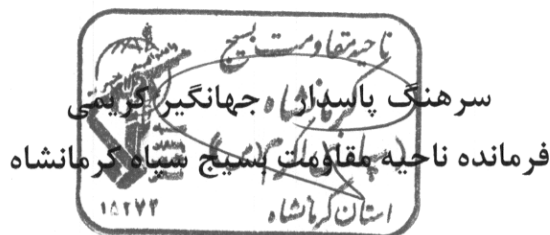 ناحیه مقاومت بسیج
کرمانشاه
سرهنگ پاسدار جهانگیر کریمی
فرمانده ناحیه مقاومت بسیج سپاه کرمانشاه
استان کرمانشاه
۱۵۲۷۲